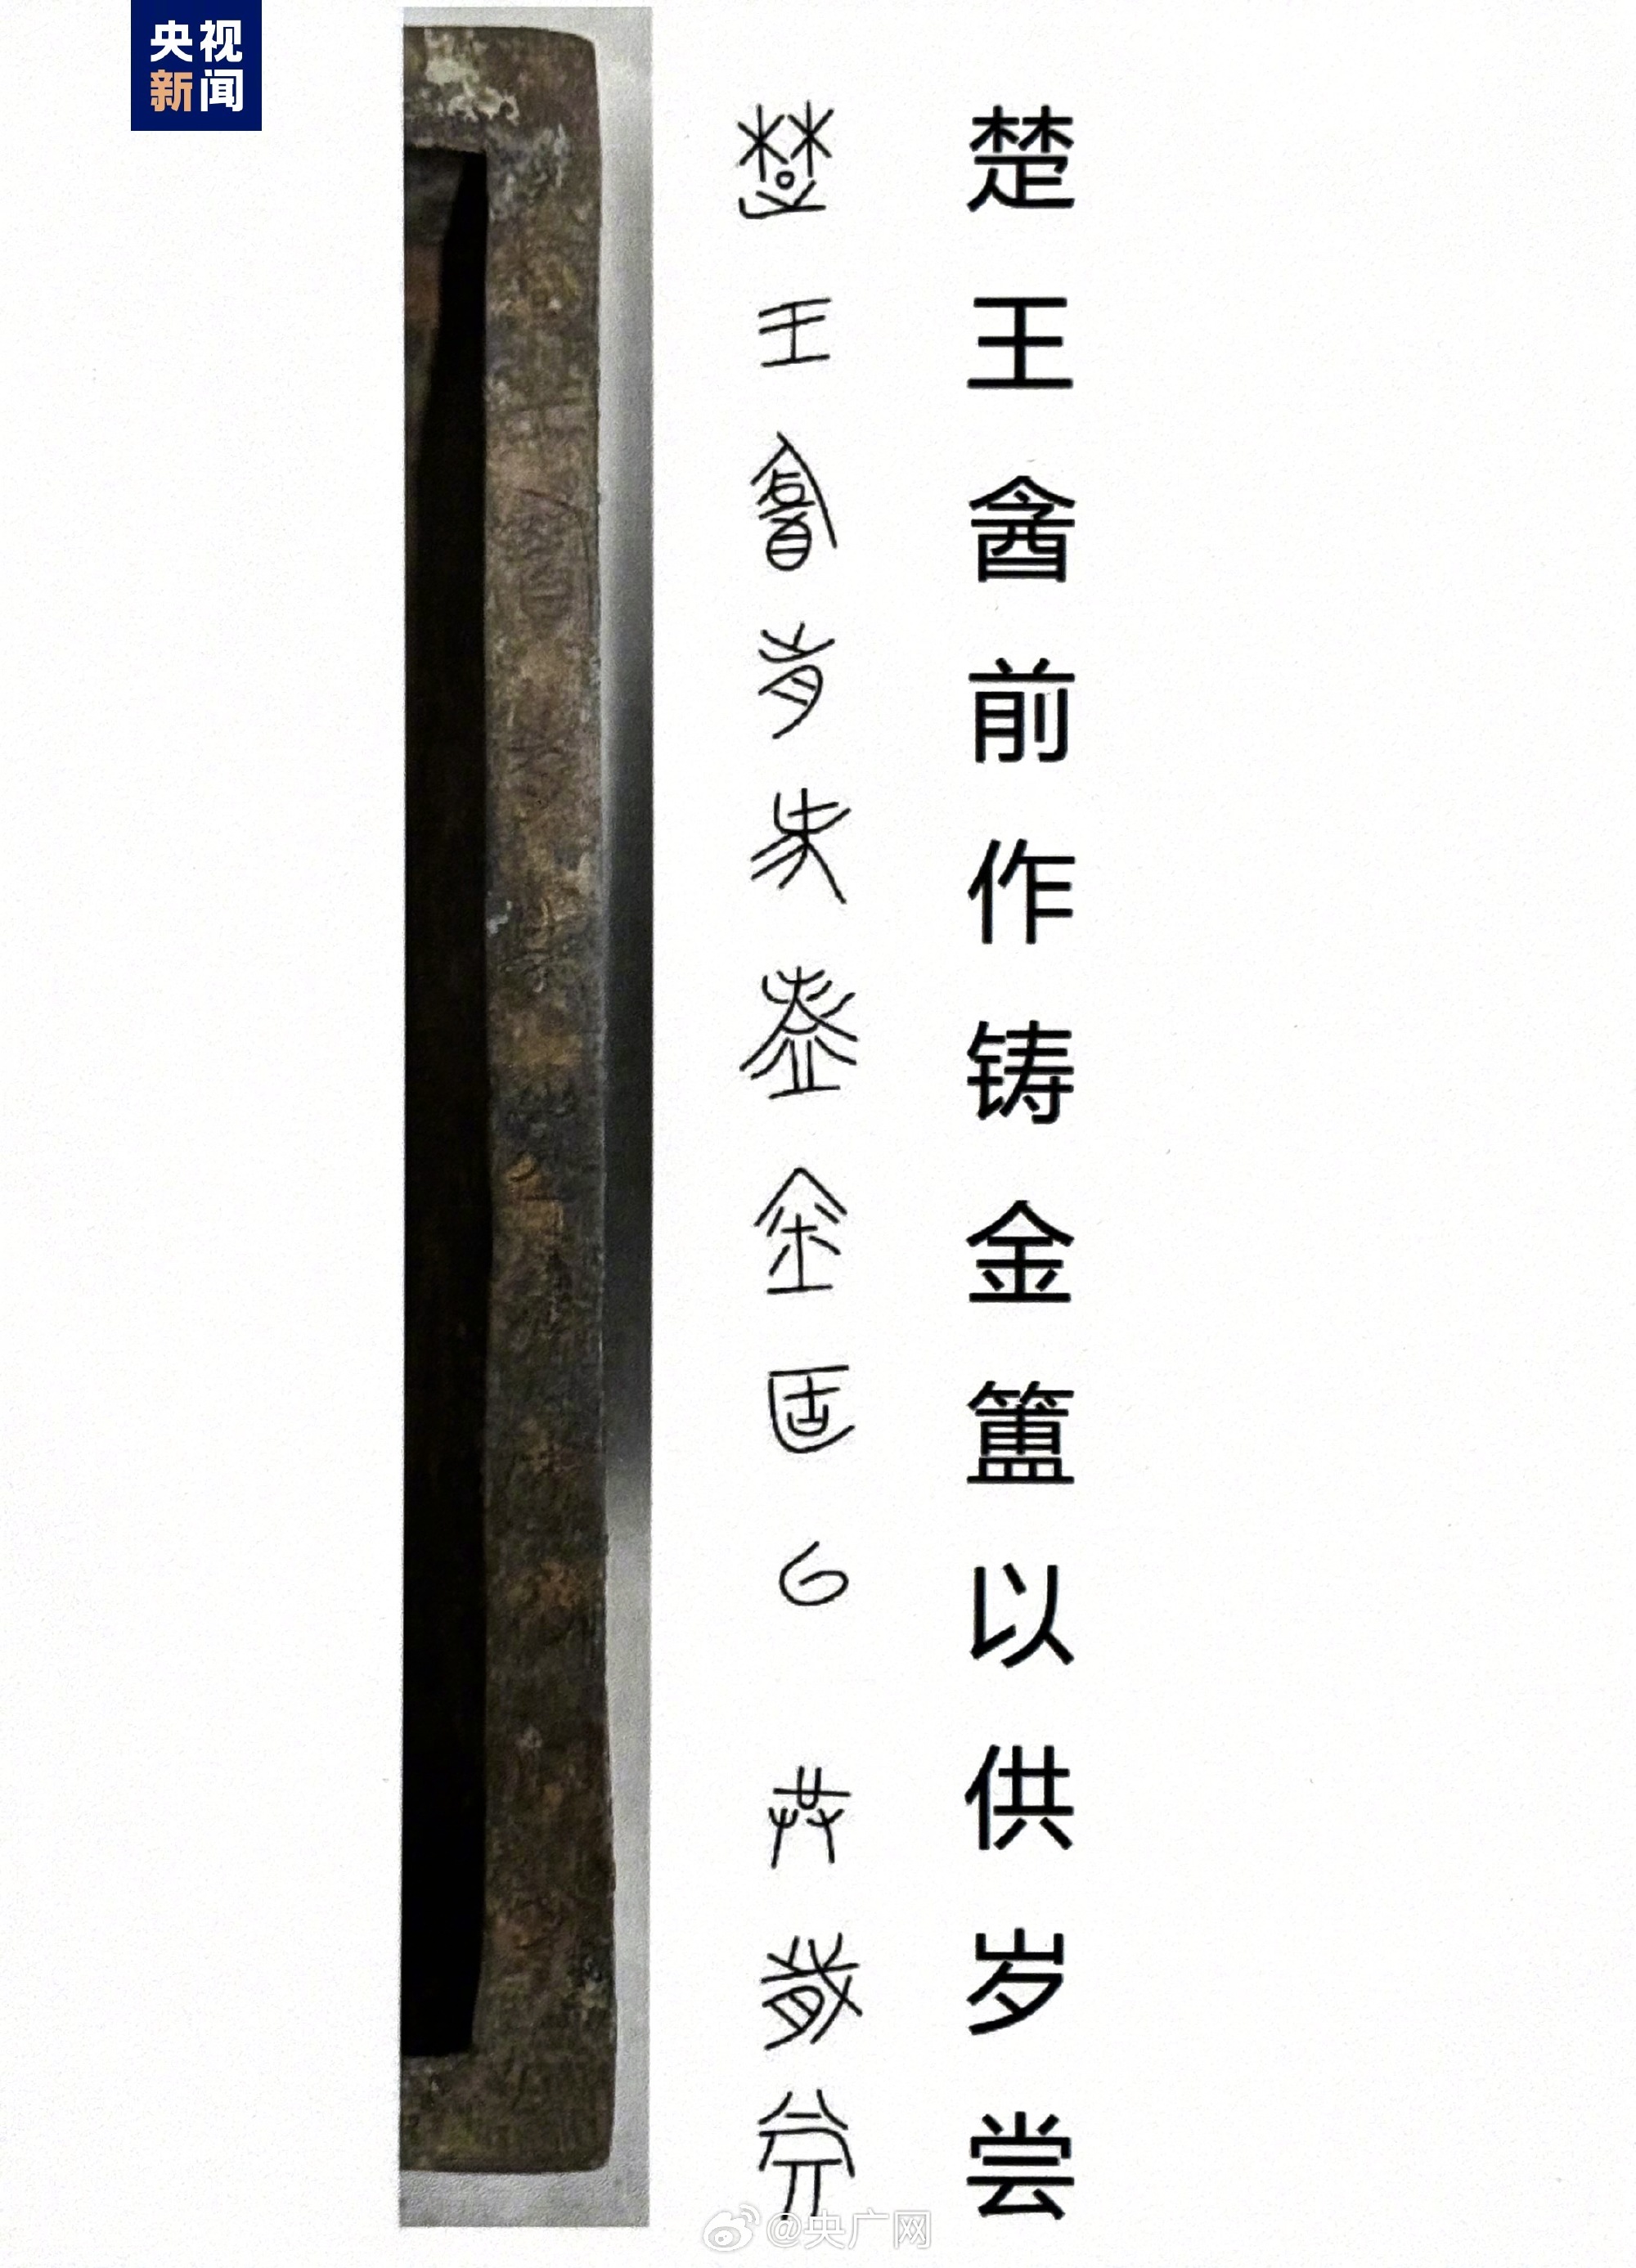 央视
新闻
楚王酓前作铸金簠以供岁尝
@央广网